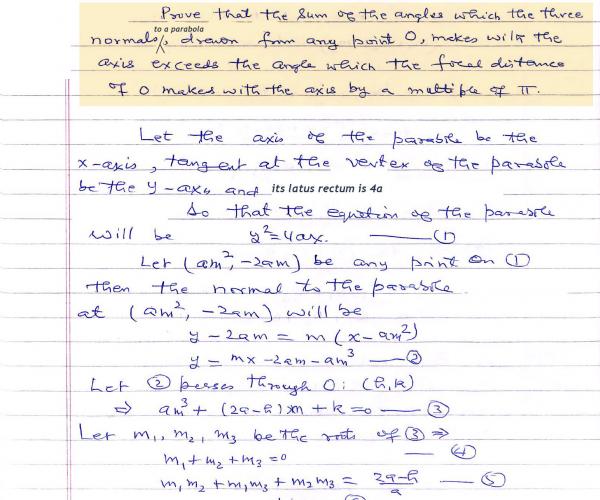 Prove that the sum of the angles which the three
to a parabola
normals, drawn from any point O, makes with the
axis exceeds the angle which the focal distance
of O makes with the axis by a multiple of π.
Let the axis of the parabola be the
x-axis, tangent at the vertex of the parabola
be the y-axis and its latus rectum is 4a
So that the equation of the parabola
will be y²=4ax. ——— ①
Let (am², -2am) be any point on ①
then the normal to the parabola
at (am², -2am) will be
y - 2am = m(x - am²)
y = mx - 2am - am³ —— ②
Let ② passes through O: (h,k)
⇒ am³ + (2a-h)m + k = 0 —— ③
Let m₁, m₂, m₃ be the roots of ③ ⇒
m₁ + m₂ + m₃ = 0 —— ④
m₁m₂ + m₁m₃ + m₂m₃ = (2a-h)/a —— ⑤